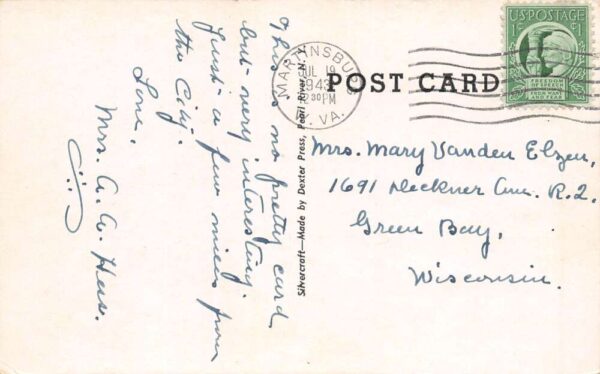 This is no pretty card
but very interesting.
Just a few miles from
the City.
Love,
Mrs. A. W.
Silvercraft—Made by Dexter Press, Pearl River, N. Y.
MARTINSBURG
JUL 19
1943
2 30 PM
W. VA.
POST CARD
U.S. POSTAGE
1¢ 1¢
FREEDOM
OF SPEECH
FROM WANT
AND FEAR
Mrs. Mary Vanden Elzen,
1691 Deckner Ave. R. 2.
Green Bay,
Wisconsin.